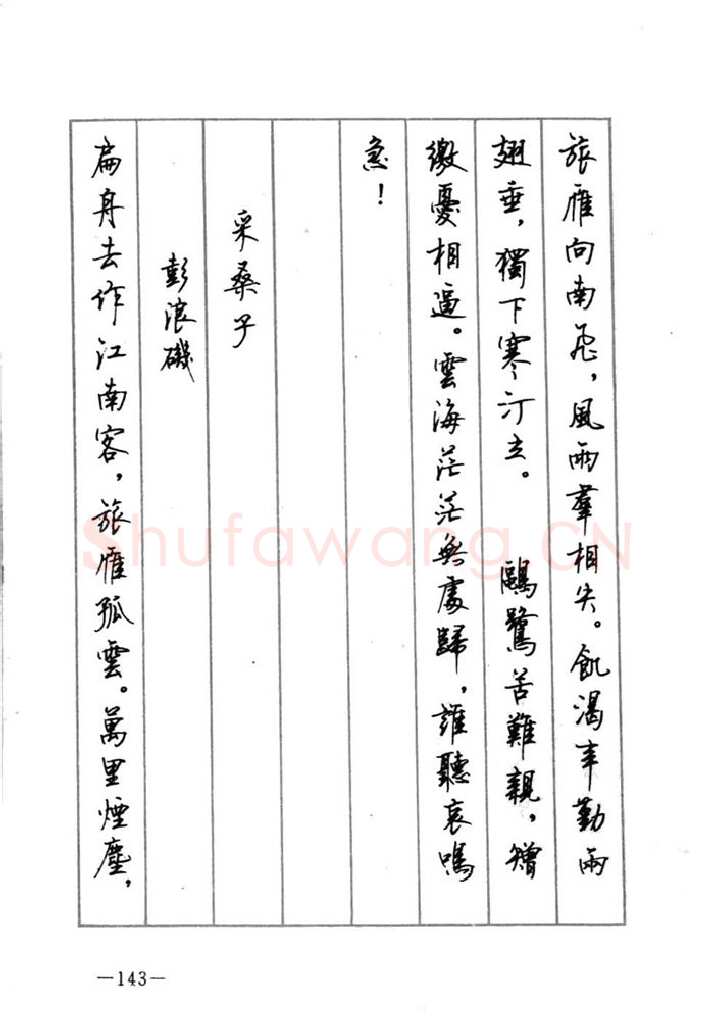 旅雁向南飛，風雨羣相失。飢渴辛勤兩
翅垂，獨下寒汀立。　鷗鷺苦難親，矰
繳憂相逼。雲海茫茫無處歸，誰聽哀鳴
急！
采桑子
彭浪磯
扁舟去作江南客，旅雁孤雲。萬里煙塵，
—143—
Shufawang.CN